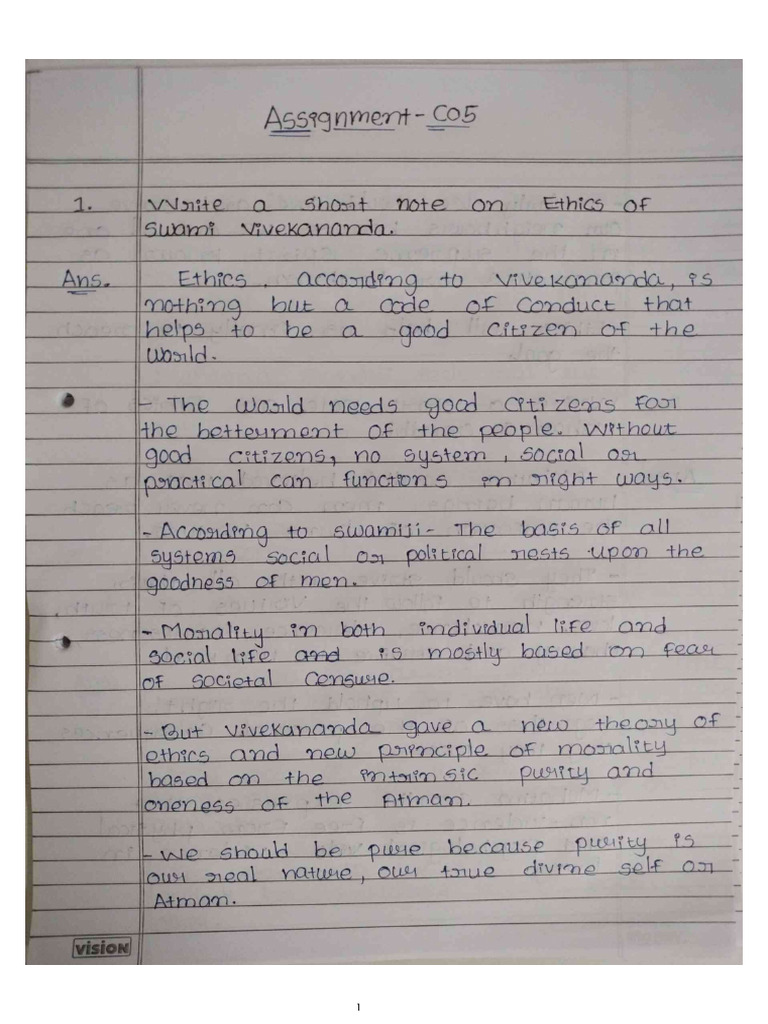 Assignment - CO5
1. Write a short note on Ethics of
Swami Vivekananda.
Ans. Ethics, according to Vivekananda, is
nothing but a code of conduct that
helps to be a good citizen of the
world.
- The world needs good citizens for
the betterment of the people. Without
good citizens, no system, social or
practical can functions in right ways.
- According to swamiji - The basis of all
systems social or political rests upon the
goodness of men.
- Morality in both individual life and
social life and is mostly based on fear
of societal censure.
- But Vivekananda gave a new theory of
ethics and new principle of morality
based on the intrinsic purity and
oneness of the Atman.
- We should be pure because purity is
our real nature, our true divine self or
Atman.
VISION
1